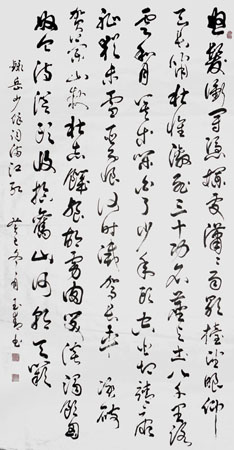 怒髮衝冠憑欄處瀟瀟雨歇擡望眼仰
天長嘯壯懷激烈三十功名塵與土八千里路
雲和月莫等閒白了少年頭空悲切靖康
恥猶未雪臣子恨何時滅駕長車踏破
賀蘭山缺壯志飢餐胡虜肉笑談渴飲匈
奴血待從頭收拾舊山河朝天闕
錄岳少保詞滿江紅 癸巳冬月